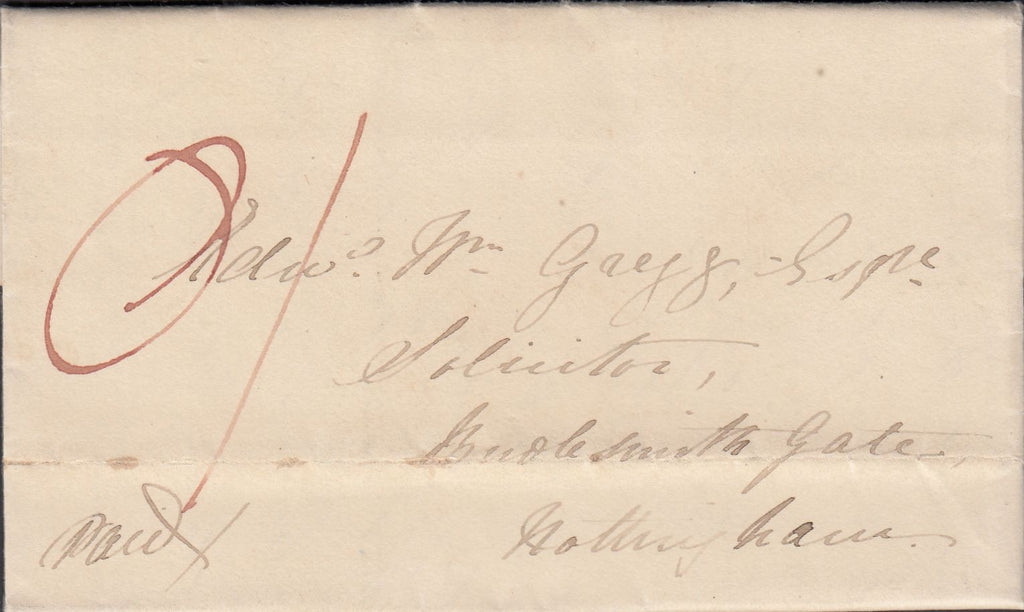 Edwd. Wm. Gregg, Esqre.
Solicitor,
Bridlesmith Gate,
Nottingham.
Paid